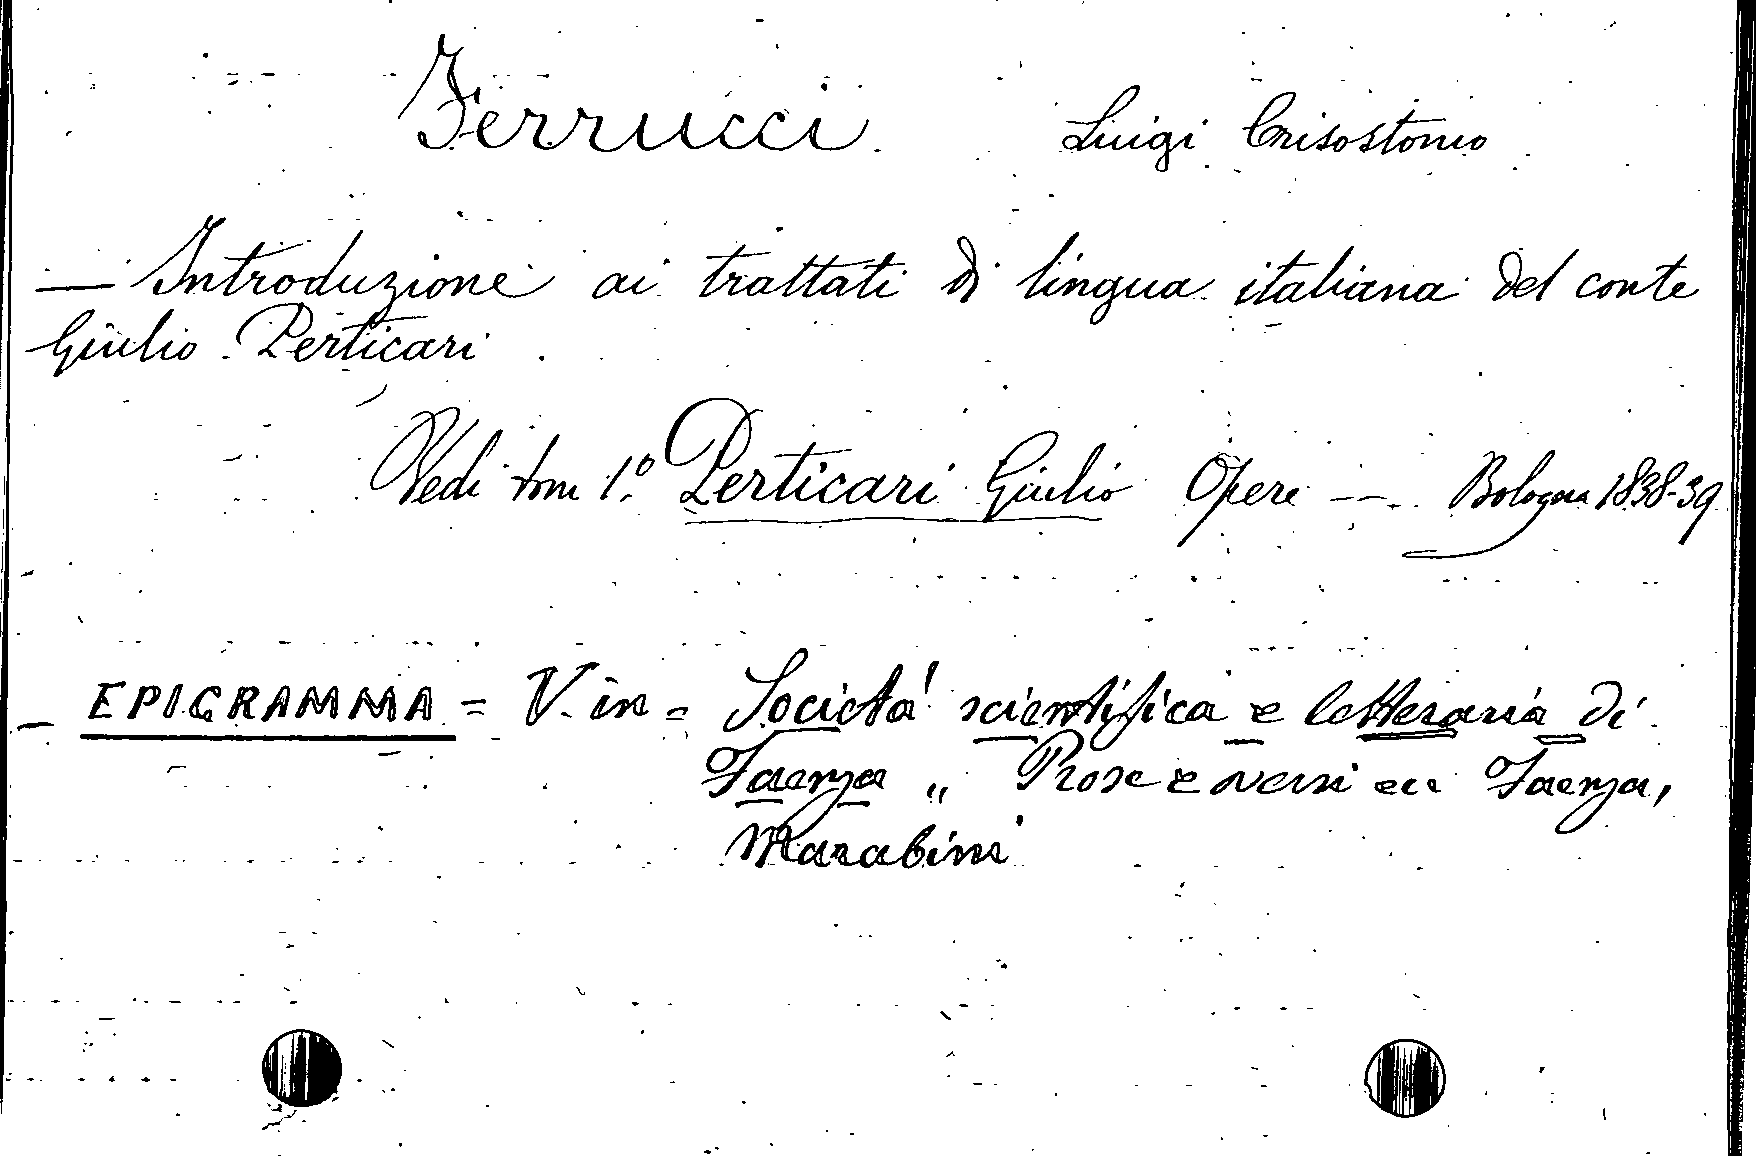 Ferrucci Luigi Crisostomo
— Introduzione ai trattati di lingua italiana del conte
Giulio Perticari
Vedi tom 1.º Perticari Giulio Opere — Bologna 1838-39
— EPIGRAMMA = V. in = Società scientifica e letteraria di
Faenza „ Prose e versi ecc Faenza,
Marabini